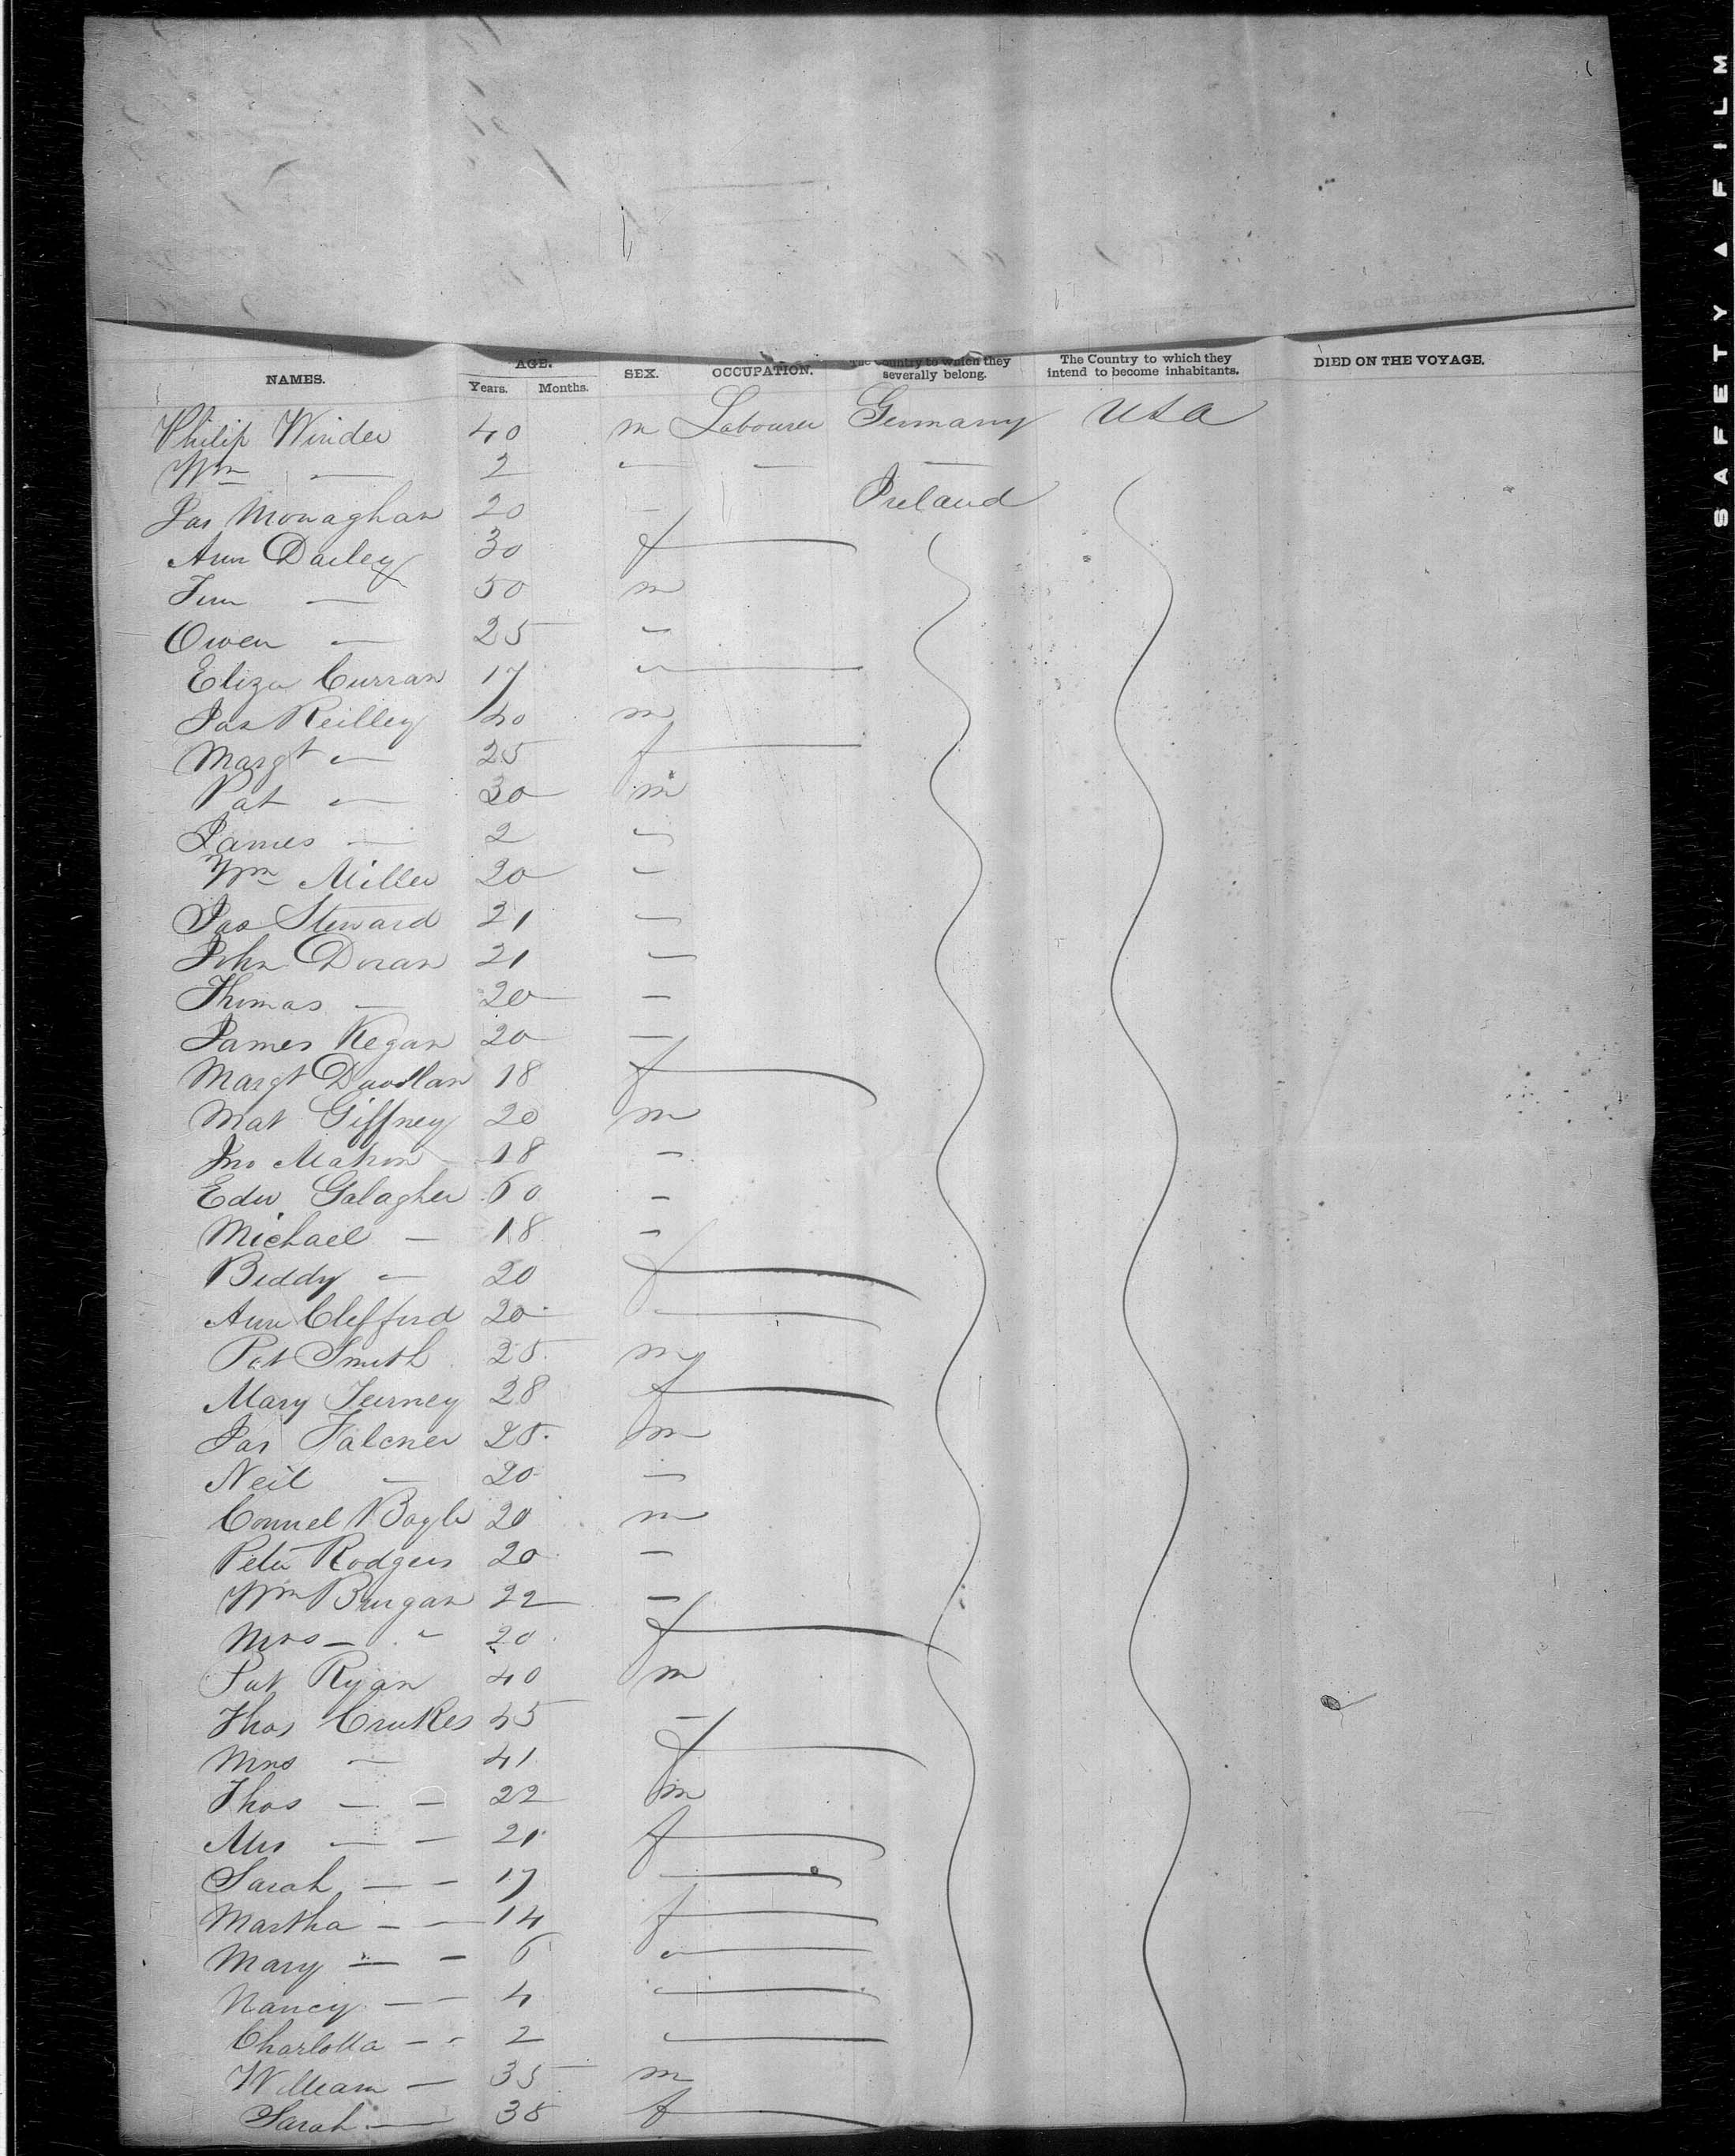 NAMES. AGE. Years. Months. SEX. OCCUPATION. The Country to which they severally belong. The Country to which they intend to become inhabitants. DIED ON THE VOYAGE.
Philip Winder 40 m Labourer Germany USA
Wm — 2 — — —
Jas Monaghan 20 — Ireland
Ann Dailey 30 f
— 50 m
Owen — 25 —
Eliza Curran 17 —
Jas Reilley 40 m
Margt — 25 f
Pat — 30 m
James — 2 —
Wm Miller 20 —
Jas Steward 21 —
John Doran 21 —
Thomas — 20 —
James Kegan 20 —
Margt 18 f
Mat Giffney 20 m
Jno Mahon 18 —
Edw. Galagher 60 —
Michael — 18 —
Biddy — 20 f
Ann Clifford 20 —
Pat Smith 25 m
Mary Tierney 28 f
Jas Falcner 25 m
Neil — 20 —
Connel Bogle 20 m
Peter Rodgers 20 —
Wm 22 —
Mrs — " 20 f
Pat Ryan 40 m
Thos Crukes 45 —
Mrs — 41 f
Thos — — 22 m
Mrs — — 21 f
Sarah — — 17 —
Martha — — 14 f
Mary — — 6 —
Nancy — — 4 —
Charlotta — — 2 —
William — 35 m
Sarah — 38 f
SAFETY FILM